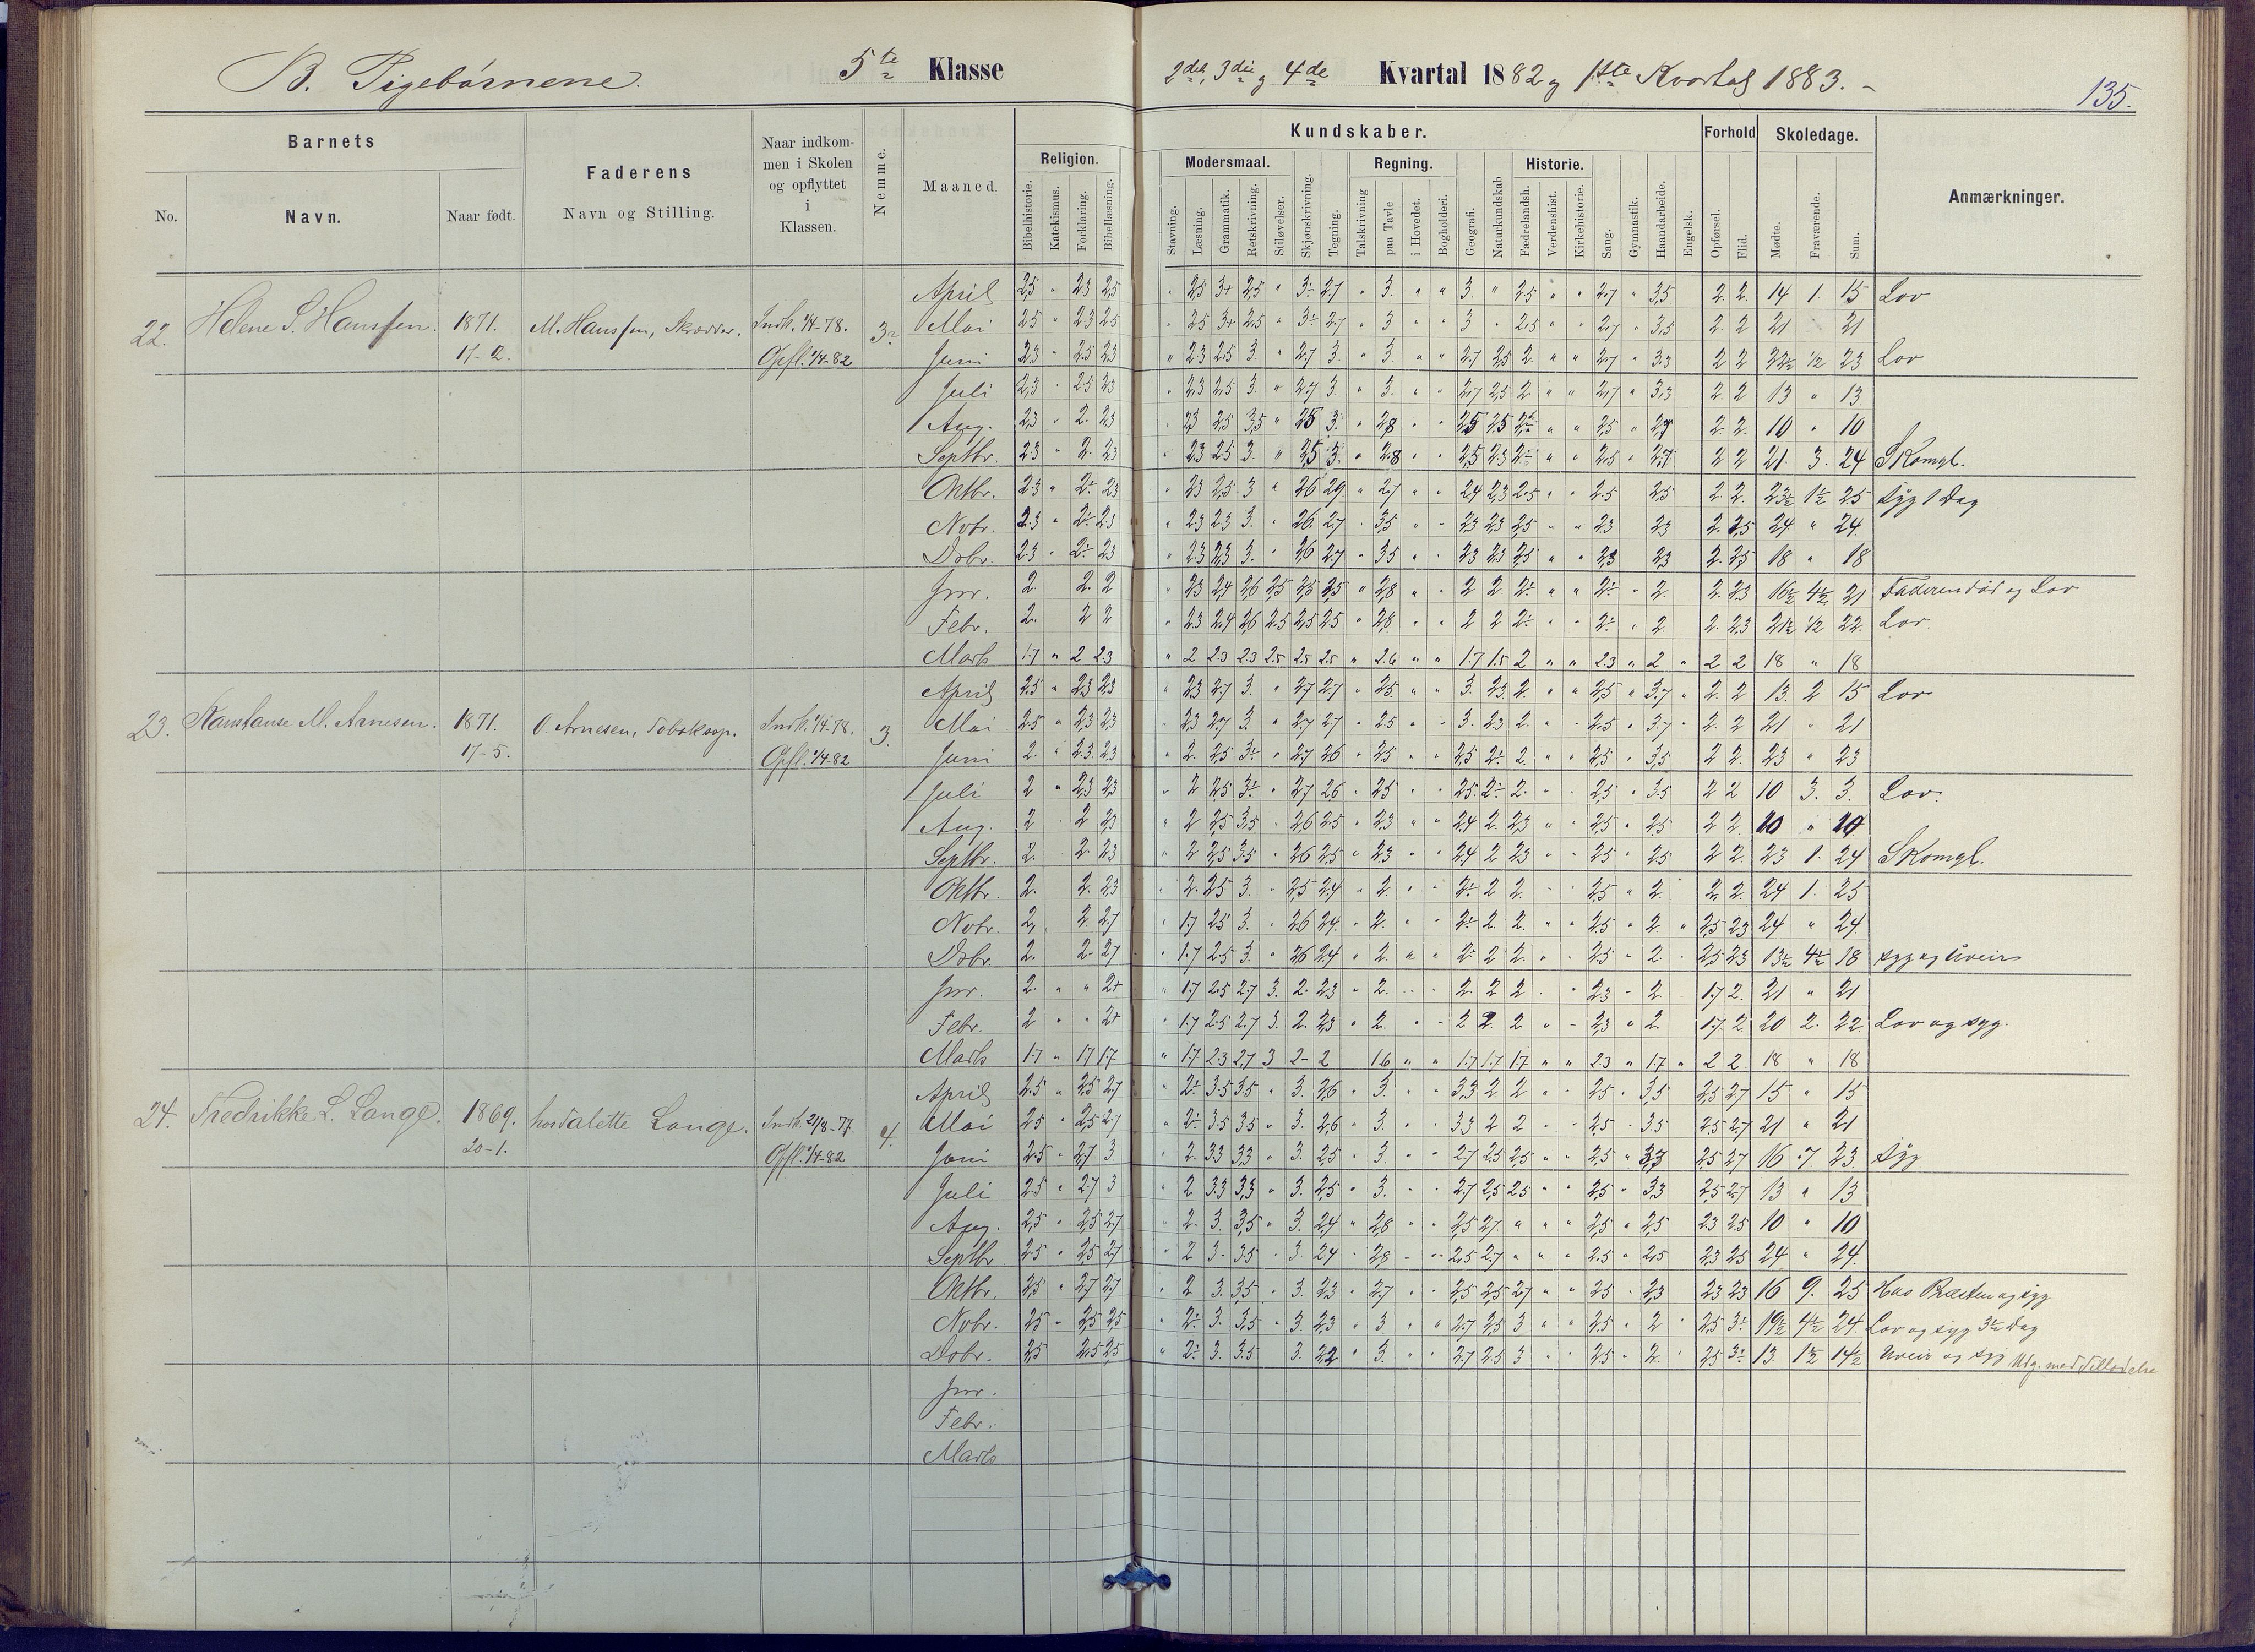 B. Pigebørnene. 5te Klasse 2det, 3die og 4de Kvartal 1882 og 1ste Kvartal 1883. -
135.
Barnets
No.
Navn.
Naar født.
Faderens
Navn og Stilling.
Naar indkom-
men i Skolen
og opflyttet
i
Klassen.
Nemme.
Maaned.
Religion.
Bibelhistorie.
Katekismus.
Forklaring.
Bibellæsning.
Kundskaber.
Modersmaal.
Stavning.
Læsning.
Grammatik.
Retskrivning.
Stiløvelser.
Skjønskrivning.
Tegning.
Regning.
Talskrivning
paa Tavle
i Hovedet.
Bogholderi.
Geografi.
Naturkundskab
Historie.
Fædrelandsh.
Verdenshist.
Kirkehistorie.
Sang.
Gymnastik.
Haandarbeide.
Engelsk.
Forhold
Opførsel.
Flid.
Skoledage.
Mødte.
Fraværende.
Sum.
Anmærkninger.
22. Helene S. Hanssen. 1871. 17-2. M. Hanssen, Skrædder. Indk. 1/4-78. Opfl. 1/4-82 3
April 2,5 " 2,3 2,5 " 2,5 3+ 2,5 " 3÷ 2,7 " 3. " " 3. " 2,5 " " 2,7 " 3,5 2. 2. 14 1. 15 Lov
Mai 2,5 " 2,3 2,5 " 2,5 3+ 2,5 " 3÷ 2,7 " 3 " " 3 " 2,5 " " 2,7 " 3,5 2. 2 21 21
Juni 2,3 " 2,5 2,3 " 2,3 2,5 3. " 2,7 3. " 3. " " 2,7 2,5 2. " " 2,7 " 3,3 2 2 22½ ½ 23 Lov
Juli 2,3 " 2,5 2,3 " 2,3 2,5 3. " 2,7 3. " 3. " " 2,7 2,5 2 " " 2,7 " 3,3 2. 2 13 " 13.
Aug. 2,3 " 2. 2,3 " 2,3 2,5 3,5 " 2,5 3. " 2,8 " " 2,5 2,5 2÷ " " 2,5 " 2,7 2. 2. 10 " 10
Septbr. 2,3 " 2. 2,3 " 2,3 2,5 3. " 2,5 3. " 2,8 " " 2,5 2,3 2÷ " " 2,5 " 2,7 2 2 21. 3. 24 Skomgl.
Oktbr. 2,3 " 2÷ 2,3 " 2,3 2,5 3 " 2,6 2,9 " 2,7 " " 2,4 2,3 2,5 " " 2,5 2,5 2. 2. 23½ 1½ 25 syg 1 Dag
Novbr. 2,3 " 2÷ 2,3 " 2,3 2,3 3. " 2,6 2,7 " 3,5 " " 2,3 2,3 2,5 " " 2,3 2,3 2. 2,5 24. " 24.
Dcbr. 2,3 " 2÷ 2,3 " 2,3 2,3 3. " 2,6 2,7 " 3,5 " " 2,3 2,3 2,5 " " 2,3 2,3 2. 2,5 18 " 18
Jnr. 2. 2. 2 " 2,3 2,4 2,6 2,5 2,5 2,5 " 2,8 " " 2 2 2÷ " " 2÷ " 2. 2. 2,3 16½ 4½ 21 Faderen død og Lov
Febr. 2. 2 2 " 2,3 2,4 2,6 2,5 2,5 2,5 " 2,8 " " 2 2 2÷ " " 2÷ " 2. 2. 2,3 21½ ½ 22. Lov.
Marts 1.7 " 2 2.3 " 2 2.3 2.3 2.5 2.5 2.5 " 2.6 " " 1.7 1.5 2 " " 2.3 " 2 " 2 2 18 " 18
23. Konstanse M. Arnesen. 1871. 17-5. O Arnesen, Tobaksp. Indk. 1/4-78. Opfl. 1/4-82 3.
April 2,5 " 2,3 2,3 " 2,3 2,7 3. " 2,7 2,7 " 2,5 " " 3. 2,3 2. " " 2,5 " 3,7 " 2. 2 13. 2 15 Lov
Mai 2,5 " 2,3 2,3 " 2,3 2,7 3 " 2,7 2,7 " 2,5 " " 3. 2,3 2. " " 2,5 " 3,7 " 2. 2 21 " 21
Juni 2. " 2,3 2,3 " 2. 2,5 3÷ " 2,7 2,6 " 2,5 " " 2,5 2÷ 2. " " 2,5 " 3,5 2 2. 23 " 23
Juli 2 " 2,3 2,3 " 2 2,5 3÷ " 2,7 2,6 " 2,5 " " 2,5 2÷ 2. " " 2,5 " 3,5 2 2 10 3. 3. Lov.
Aug. 2 " 2 2,3 " 2 2,5 3,5 " 2,6 2,5 " 2,3 " " 2,4 2. 2,3 " " 2,5 " 2,5 2 2. 10 " 10
Septbr. 2. 2. 2,3 " 2 2,5 3,5 " 2,6 2,5 " 2,3 " " 2,4 2 2,3 " " 2,5 " 2,5 2 2. 23 1. 24 Skomgl.
Oktbr. 2. 2. 2,3 " 2. 2,5 3. " 2,5 2,4 " 2. " " 2÷ 2 2. " " 2,5 " 2. 2. 2. 24 1. 25
Novbr. 2. 2 2,7 " 1,7 2,5 3. " 2,6 2,4 " 2. " " 2÷ 2. 2. " " 2,5 " 2. " 2,5 2,3 24 " 24.
Dcbr. 2. 2 2,7 " 1,7 2,5 3. " 2,6 2,4 " 2. " " 2÷ 2 2. " " 2,5 " 2. " 2,5 2,3 13½ 4½ 18 syg og Uveir
Jnr. 2. " " 2+ " 1,7 2,5 2,7 3. 2. 2,3 " 2. " " 2. 2 2 " " 2,3 " 2. 1,7 2. 21 " 21
Febr. 2 " " 2+ " 1,7 2,5 2,7 3. 2. 2,3 " 2. " " 2 2. 2 " " 2,3 " 2. 1,7 2. 20 2. 22. Lov og syg.
Marts 1.7 " 1.7 1.7 " 1.7 2.3 2.7 3 2- 2 1.6 " " 1.7 1.7 1.7 " " 2.3 " 1.7 " 2 2 18 " 18
24. Fredrikke L. Lange. 1869. 20-1. hos Valette Lange. Indk. 21/8-77. Opfl. 1/4-82 4.
April 2,5 " 2,5 2,7 " 2÷ 3,5 3,5 " 3. 2,6 " 3. " " 3,3 2 2 " " 2,5 " 3,5 2,5 2,7 15 " 15
Mai 2,5 " 2,5 2,7 " 2÷ 3,5 3,5 " 3. 2,6 " 3. " " 3,3 2 2 " " 2,5 " 3,5 2,5 2,7 21 " 21
Juni 2,5 " 2,7 3 " 2. 3,3 3,3 " 3. 2,5 " 3 " " 2,7 2,5 2,5 " " 2,5 " 3,3 2,5 2,7 16 7. 23 syg
Juli 2,5 " 2,7 3 " 2 3,3 3,3 " 3. 2,5 " 3. " " 2,7 2,5 2,5 " " 2,5 " 3,3 2,5 2,7 13 " 13
Aug. 2,5 " 2,5 2,7 " 2. 3. 3,5 " 3. 2,4 " 2,8 " " 2,5 2,7. " " " 2,5 " 2,5 2,3 2,5 10 " 10
Septbr. 2,5 " 2,5 2,7 " 2 3. 3,5 " 3. 2,4 " 2,8 " " 2,5 2,7 " " " 2,5 " 2,5 2,3 2,5 24 " 24.
Oktbr. 2,5 " 2,7 2,7 " 2 3. 3,5 " 3. 2,3 " 2,7 " " 2,5 2,5 2,7 " " 2,5 " 2,3 2,3 2,3 16 9. 25 Hos Præsten og syg
Novbr. 2,5 " 2,5 2,5 " 2÷ 3. 3,5 " 3. 2,3 " 3 " " 2,7 2,5 3 " " 2,5 " 2 " 2,5 3÷ 19½ 4½ 24. Lov og syg 3½ Dag
Dcbr. 2,5 2,5 2,5 " 2÷ 3. 3,5 3. 2,2 " 3. " " 2,7 2,5 3 " " 2,5 " 2. " 2,5 3÷ 13. 1½ 14½ Uveir og syg Udg. med Tilladelse
Jnr.
Febr.
Marts